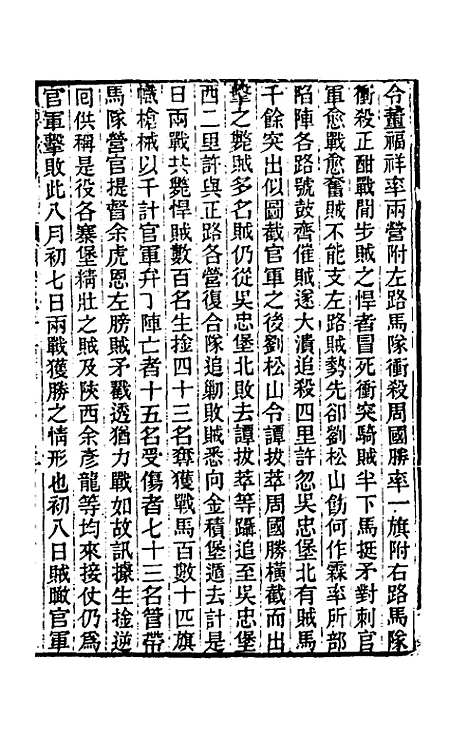 令董福祥率兩營附左路馬隊衝殺周國勝率一旗附右路馬隊
衝殺正酣戰閒步賊之悍者冒死衝突騎賊半下馬挺矛對刺官
軍愈戰愈奮賊不能支左路賊勢先卻劉松山飭何作霖率所部
陷陣各路號鼓齊催賊遂大潰追殺四里許忽吳忠堡北有賊馬
千餘突出似圖截官軍之後劉松山令譚拔萃周國勝橫截而出
擊之斃賊多名賊仍從吳忠堡北敗去譚拔萃等躡追至吳忠堡
西二里許與正路各營復合隊追剿敗賊悉向金積堡遁去計是
日兩戰共斃悍賊數百名生擒四十三名奪獲戰馬百數十匹旗
幟槍械以千計官軍弁丁陣亡者十五名受傷者七十三名營帶
馬隊營官提督余虎恩左臁賊矛戳透猶力戰如故訊據生擒逆
囘供稱是役各寨堡精壯之賊及陝西余彥龍等均來接仗仍爲
官軍擊敗此八月初七日兩戰獲勝之情形也初八日賊瞰官軍